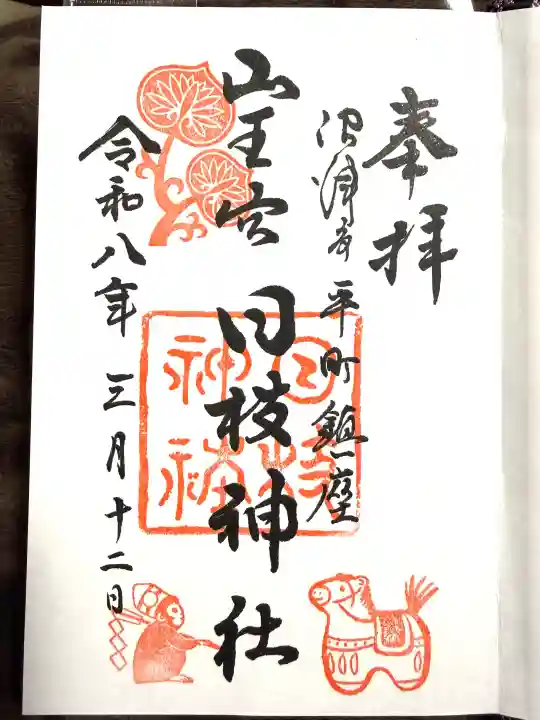 奉拝
沼津市平町鎮座
山王宮 日枝神社
令和八年三月十二日
日枝神社